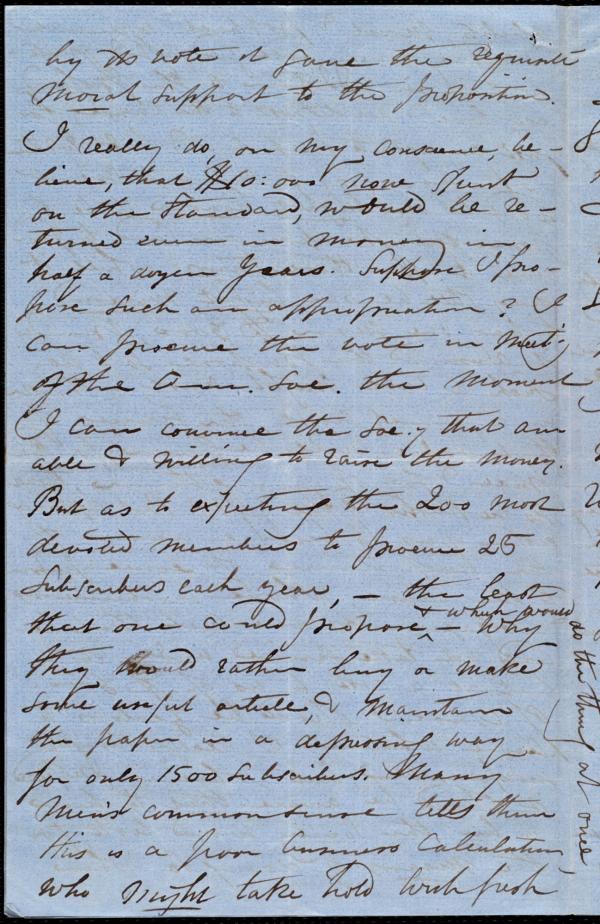 by its vote it gave the requisite
moral support to the proposition.
I really do, on my conscience, be-
lieve, that $10:000 now spent
on the Standard, would be re-
turned even in money in
half a dozen years. Suppose I pro-
pose such an appropriation? I
can procure the vote in Meetg
of the Am. Soc. the moment
I can convince the Soc.y that am
able & willing to raise the money.
But as to expecting the 200 most
devoted members to procure 25
subscribers each year, — the least
that one could propose & which would — why
do the thing at once,
they would rather buy or make
some useful article, & maintain
the paper in a depressing way
for only 1500 subscribers. Many
men's common sense tells them
this is a poor business calculation,
who might take hold with fresh